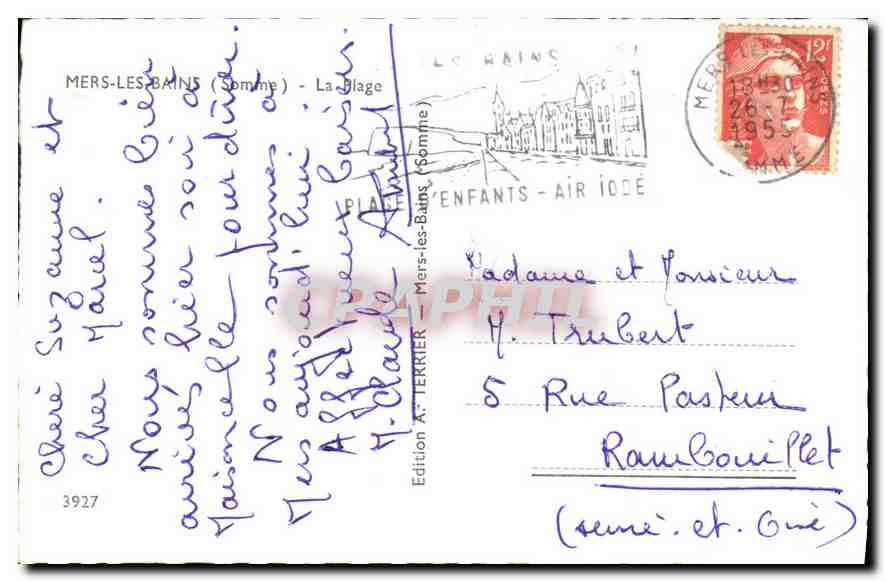 MERS-LES-BAINS (Somme) - La Plage
Chère Suzanne et
Cher Marcel.
Nous sommes bien
arrivés hier soir à
Maisoncelle pour dîner.
Nous sommes à
Mers aujourd'hui
Affectueux baisers.
M. Claude
3927
Edition A. TERRIER — Mers-les-Bains (Somme)
LES BAINS
PLAGE D'ENFANTS - AIR IODÉ
MERS-LES-BAINS
18H30
26-7
195
SOMME
12F
Madame et Monsieur
M. Trubert
5 Rue Pasteur
Rambouillet
(Seine-et-Oise)
CPAPHIL